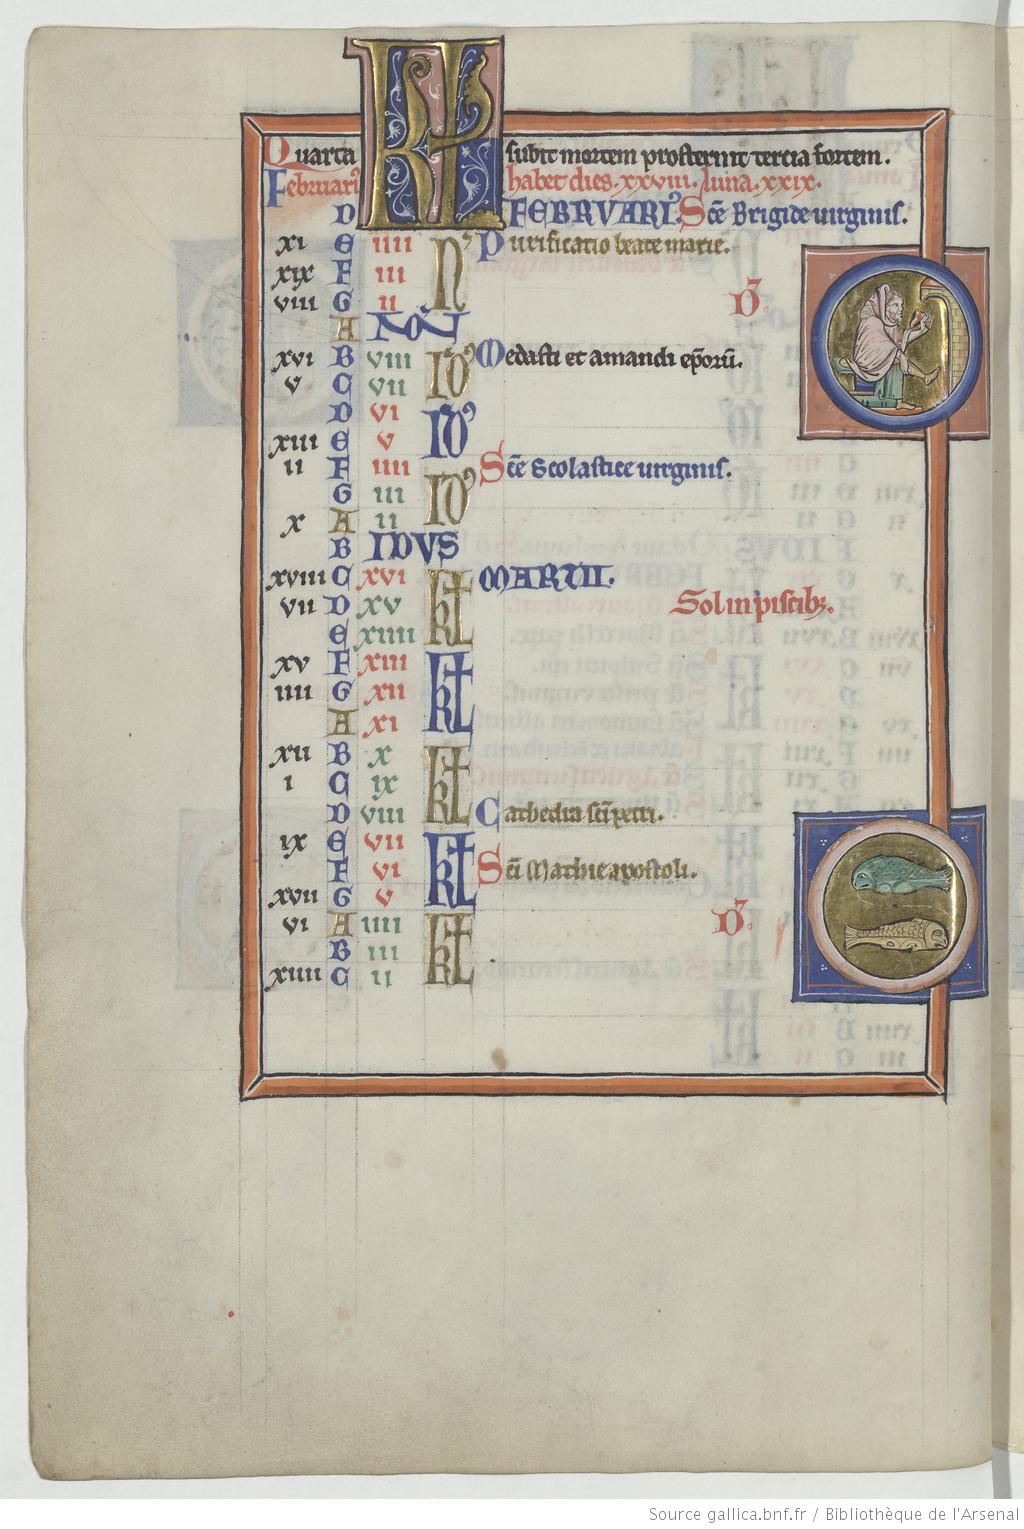 Quarta KL subit mortem prosternit tercia fortem.
Februari⁹ habet dies .xxviii. luna .xxix.
D FEBRVARI⁹. Sc̄e Brigide uirginis.
xi E iiii N⁹ Purificatio beate marie.
xix F iii
viii G ii D⁹.
A NON̄
xvi B viii ID⁹ Medasti et amandi ep̄orū.
v C vii
D vi ID⁹
xiii E v
ii F iiii ID⁹ Sc̄e Scolastice uirginis.
G iii
x A ii
B IDVS
xviii C xvi kł MARTII.
vii D xv Sol in piscib⁹.
E xiiii
xv F xiii kł
iiii G xii
A xi
xii B x kł
i C ix
D viii Cathedra sc̄i petri.
ix E vii kł
F vi Sc̄i Mathie apostoli.
xvii G v
vi A iiii kł D⁹.
B iii
xiiii C ii
Source gallica.bnf.fr / Bibliothèque de l'Arsenal